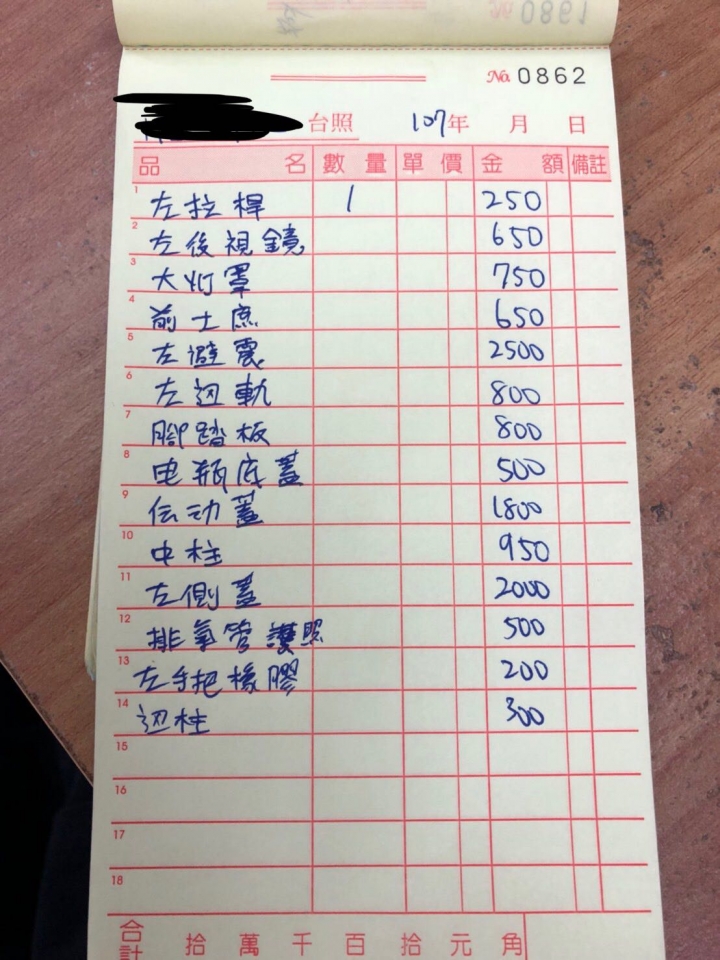 No 0862
台照 107年 月 日
品名 數量 單價 金額 備註
1 左拉桿 1 250
2 左後視鏡 650
3 大灯罩 750
4 前士庶 650
5 左避震 2500
6 左边軌 800
7 腳踏板 800
8 电瓶底蓋 500
9 伝动蓋 1800
10 中柱 950
11 左側蓋 2000
12 排氣管護照 500
13 左手把橡膠 200
14 边柱 300
15
16
17
18
合計 拾 萬 千 百 拾 元 角